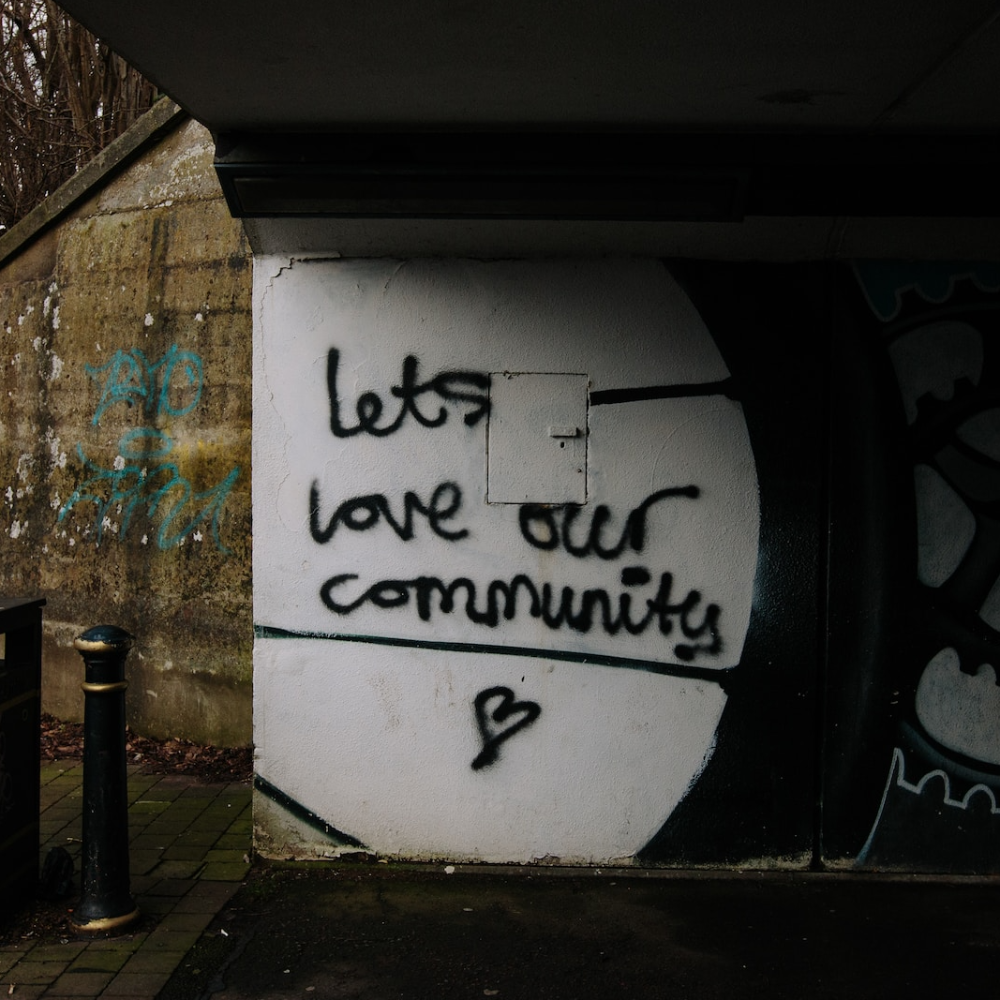 Lets
love our
community